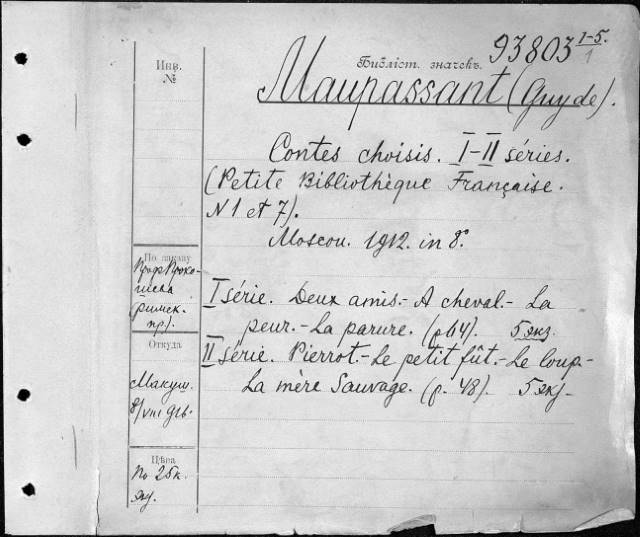 93803 1-5.
1
Инв.
№
Библіот. значекъ.
Maupassant (Guy de).
Contes choisis. I-II séries.
(Petite Bibliothèque Française.
N 1 et 7).
Moscou. 1912. in 8°.
По заказу
I série. Deux amis.- A cheval.- La
peur.- La parure. (p 64). 5 экз.
Откуда
II série. Pierrot.- Le petit fût.- Le loup.-
La mère Sauvage. (p. 48). 5 экз.
Макуш.
8/VIII
Цѣна
По 25к.
экз.